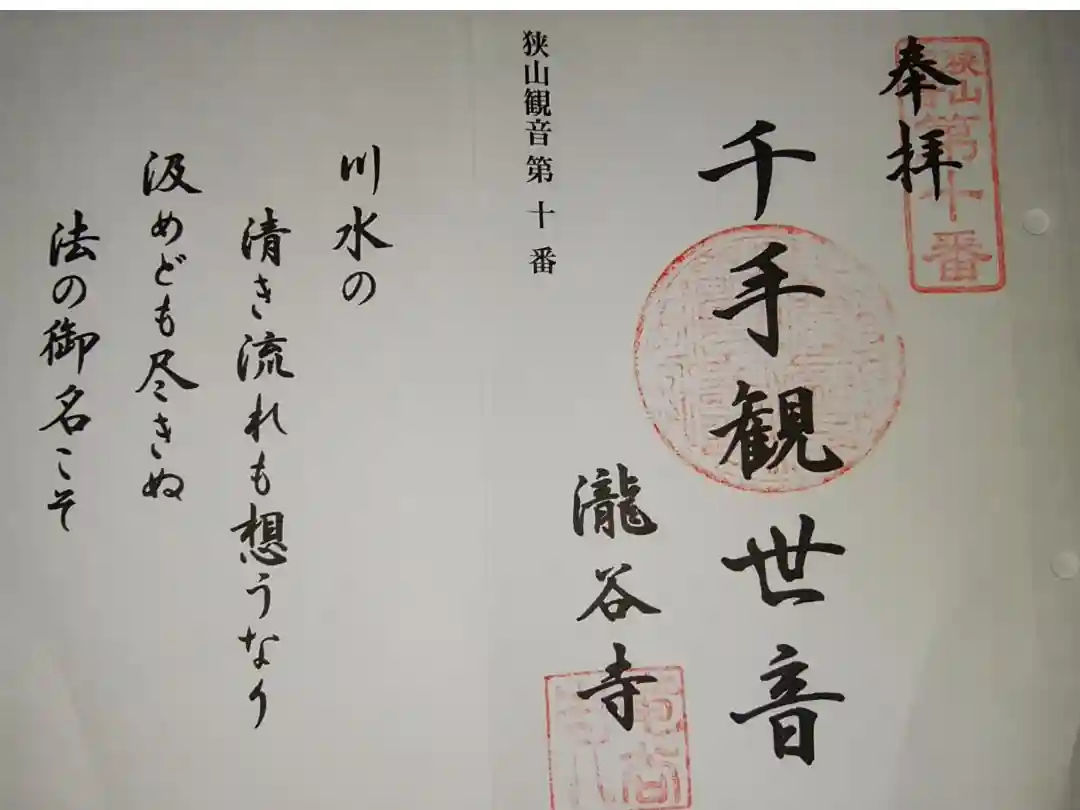 奉拝
狭山
第十番
千手観世音
瀧谷寺
狭山観音第十番
川水の
清き流れも想うなり
汲めども尽きぬ
法の御名こそ